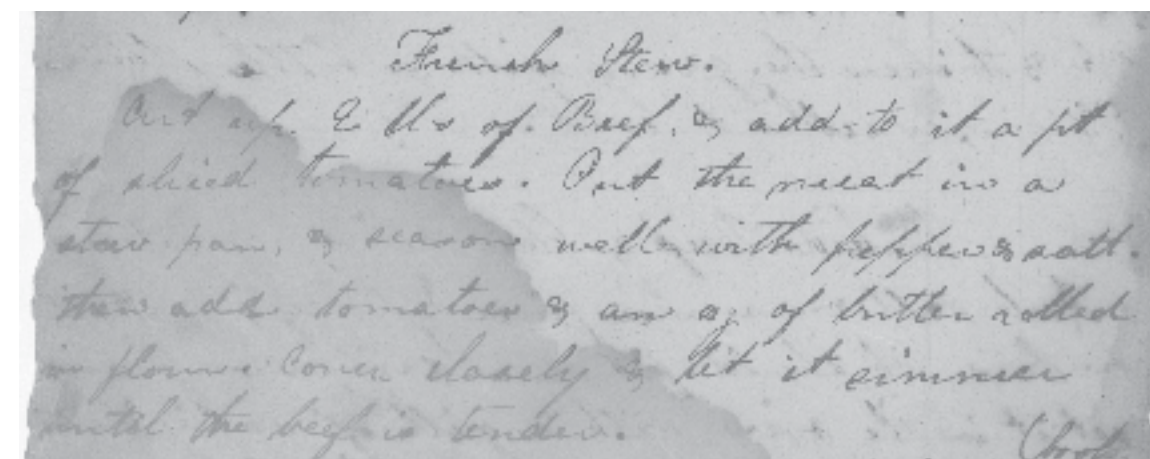 French Stew.
Cut up 2 lbs of Beef, & add to it a pt
of sliced tomatoes. Put the meat in a
stew pan, & season well with pepper & salt.
then add tomatoes & an oz of butter rolled
in flour. Cover closely & let it simmer
until the beef is tender.